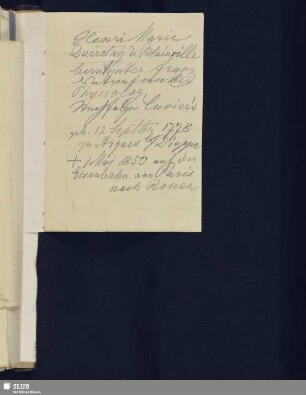 Henri Marie
Ducrotay de Blainville
berühmter franz
Naturforscher
Physiolog
Nachfolger Cuviers
geb. 12 Septbr 1778
zu Arques b/ Dieppe
† 1 Mai 1850 auf der
Eisenbahn von Paris
nach Rouen
SLUB